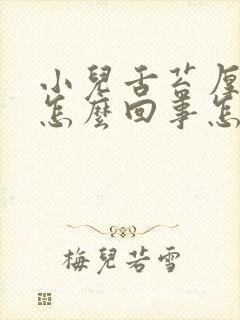 小兒舌苔厚
怎麼回事怎
梅兒若雪